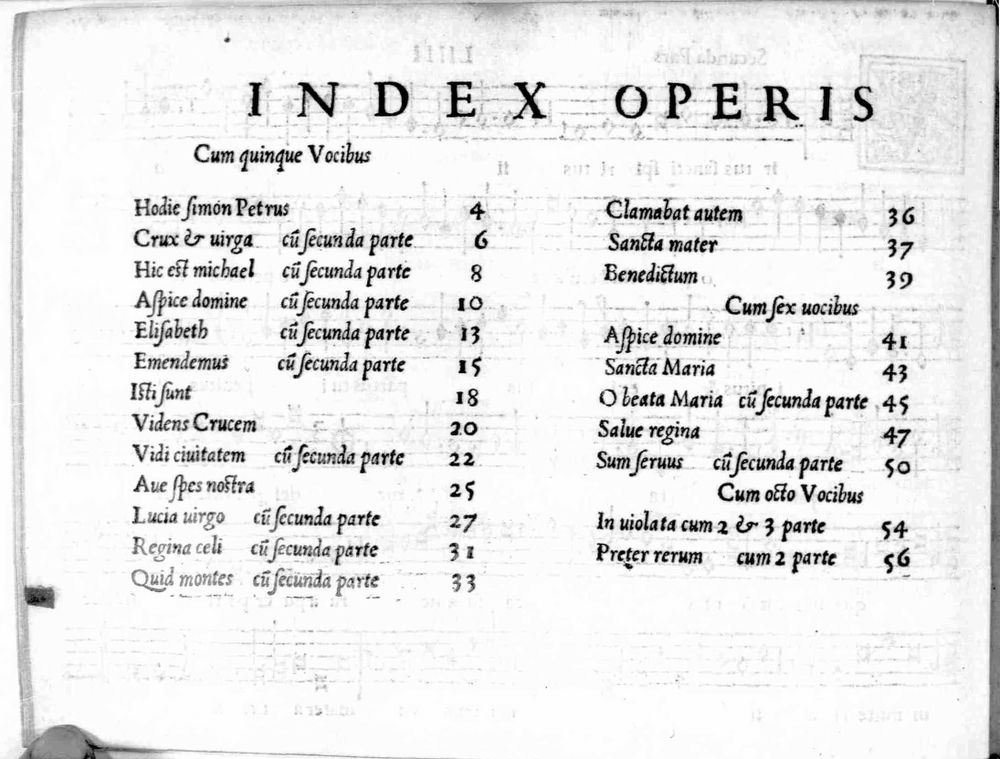 INDEX OPERIS
Cum quinque Vocibus
Hodie simon Petrus 4
Crux & uirga cū secunda parte 6
Hic est michael cū secunda parte 8
Aspice domine cū secunda parte 10
Elisabeth cū secunda parte 13
Emendemus cū secunda parte 15
Isti sunt 18
Videns Crucem 20
Vidi ciuitatem cū secunda parte 22
Aue spes nostra 25
Lucia uirgo cū secunda parte 27
Regina celi cū secunda parte 31
Quid montes cū secunda parte 33
Clamabat autem 36
Sancta mater 37
Benedictum 39
Cum sex uocibus
Aspice domine 41
Sancta Maria 43
O beata Maria cū secunda parte 45
Salue regina 47
Sum seruus cū secunda parte 50
Cum octo Vocibus
In uiolata cum 2 & 3 parte 54
Preter rerum cum 2 parte 56